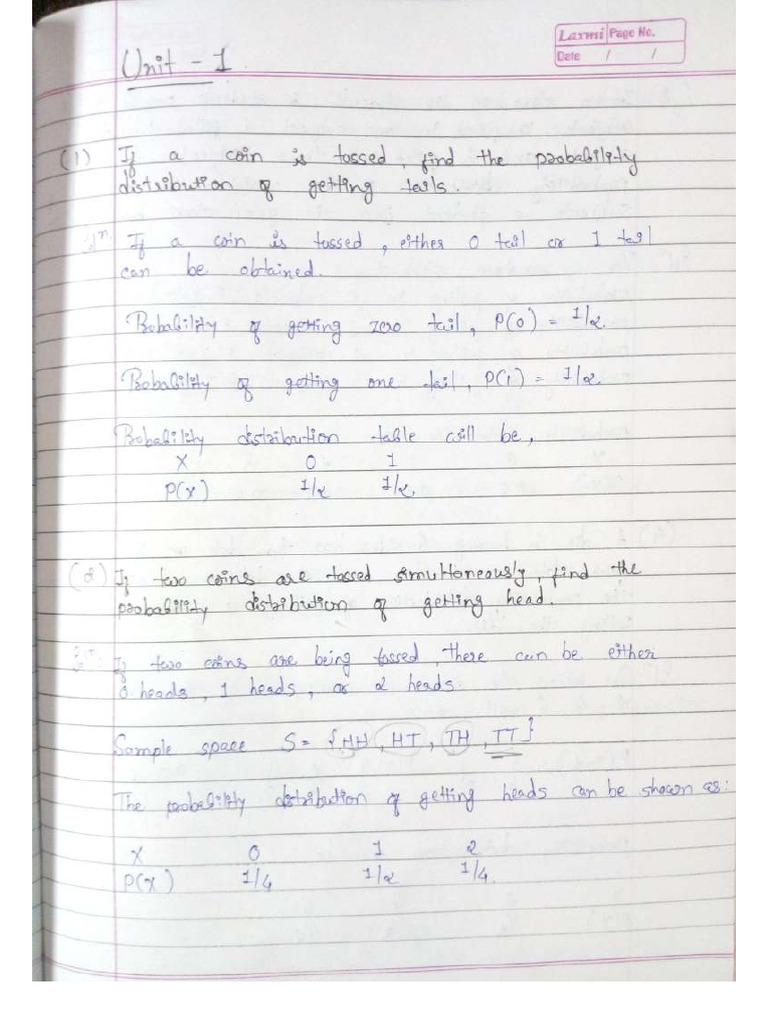 Laxmi Page No.
Date / /
Unit - 1
(1) If a coin is tossed, find the probability
distribution of getting tails.
If a coin is tossed, either 0 tail or 1 tail
can be obtained.
Probability of getting zero tail, P(0) = 1/2
Probability of getting one tail, P(1) = 1/2
Probability distribution table will be,
X 0 1
P(X) 1/2 1/2
(2) If two coins are tossed simultaneously, find the
probability distribution of getting head.
If two coins are being tossed, there can be either
0 heads, 1 heads, or 2 heads.
Sample space S = {HH, HT, TH, TT}
The probability distribution of getting heads can be shown as:
X 0 1 2
P(X) 1/4 1/2 1/4